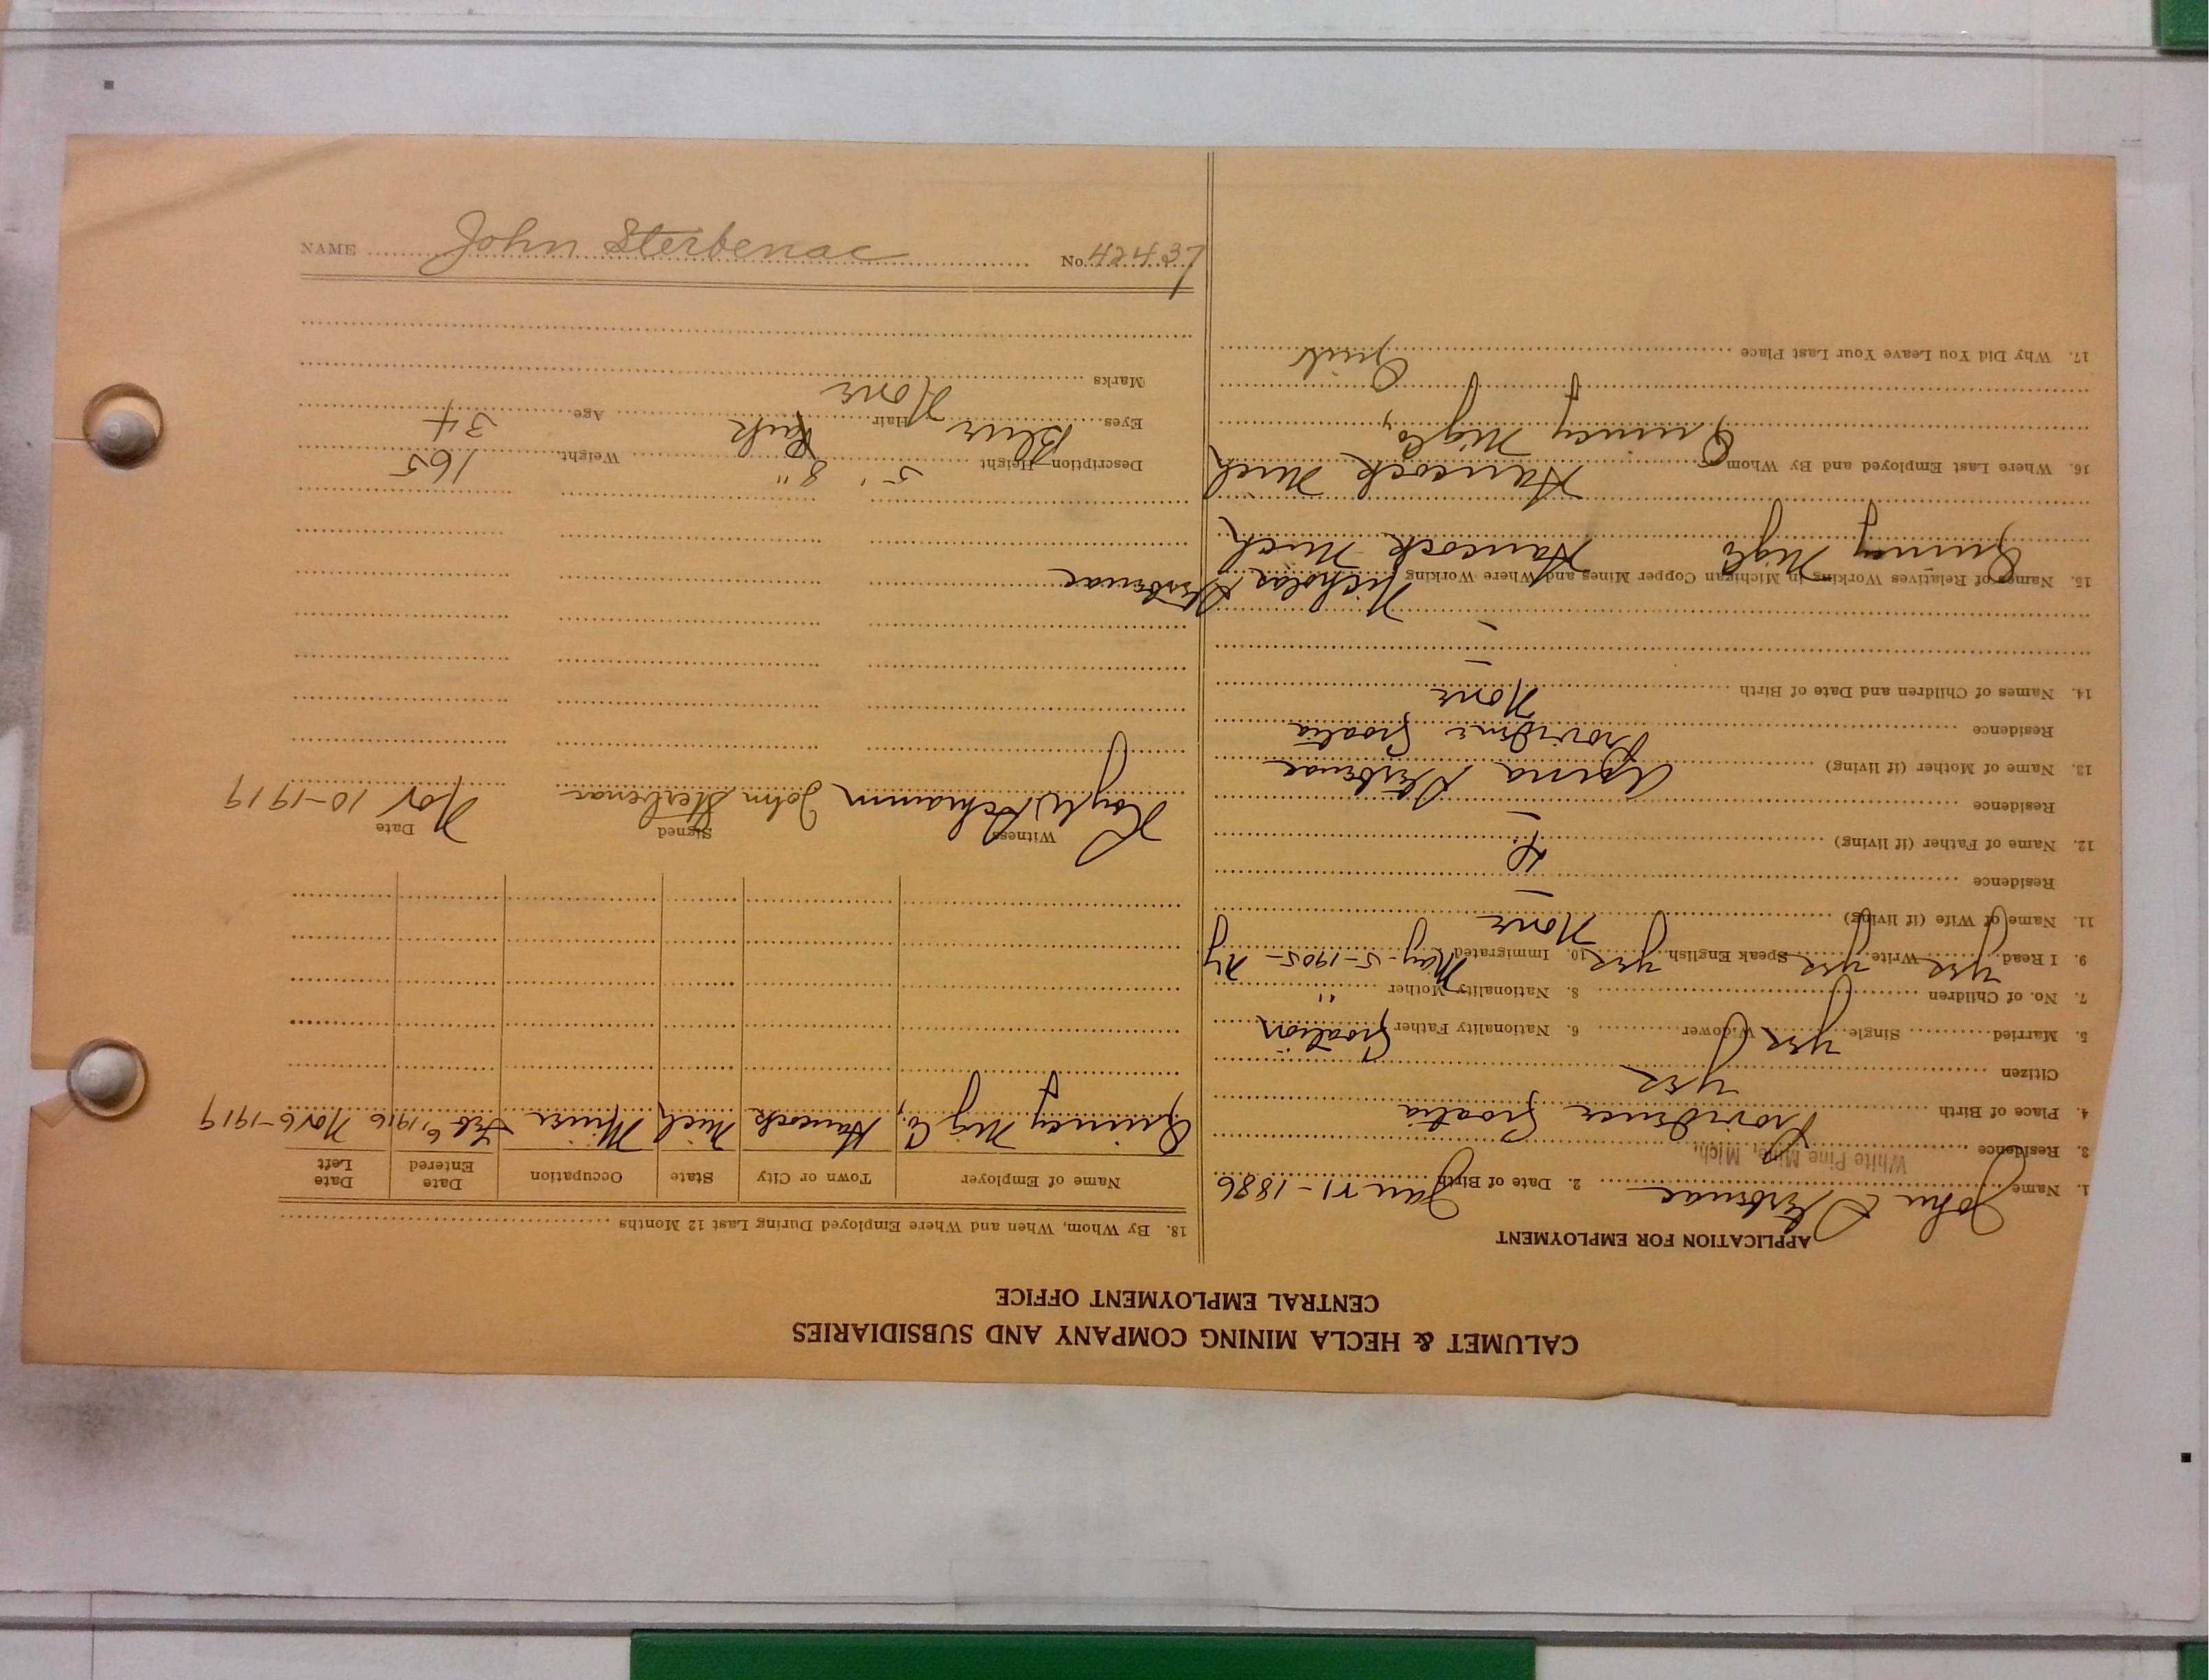 CALUMET & HECLA MINING COMPANY AND SUBSIDIARIES
CENTRAL EMPLOYMENT OFFICE
APPLICATION FOR EMPLOYMENT
1. Name John Sterbenac 2. Date of Birth Jan 11-1886
3. Residence White Pine Mine, Mich.
4. Place of Birth Croatia
Citizen yes
5. Married Single yes Widower 6. Nationality Father Croation
7. No. of Children 8. Nationality Mother "
9. I Read yes Write yes Speak English yes 10. Immigrated May-5-1905- Ny
11. Name of Wife (if living) None
Residence –
12. Name of Father (if living)
Residence –
13. Name of Mother (if living) Anna Sterbenac
Residence Croatia
14. Names of Children and Date of Birth None
–
–
15. Names of Relatives Working in Michigan Copper Mines and Where Working Nicholas Sterbenac
Quincy Mig Co Hancock Mich
16. Where Last Employed and By Whom Hancock Mich
Quincy Mig Co,
17. Why Did You Leave Your Last Place Quit
18. By Whom, When and Where Employed During Last 12 Months
Name of Employer Town or City State Occupation Date Entered Date Left
Quincy Mig Co., Hancock Mich Miner Feb 6, 1916 Nov 6-1919
Witness Signed Date
John Sterbenac Nov 10-1919
Description—Height 5' 8" Weight 165
Eyes Blue Hair Age 34
Marks None
NAME John Sterbenac No. 42437